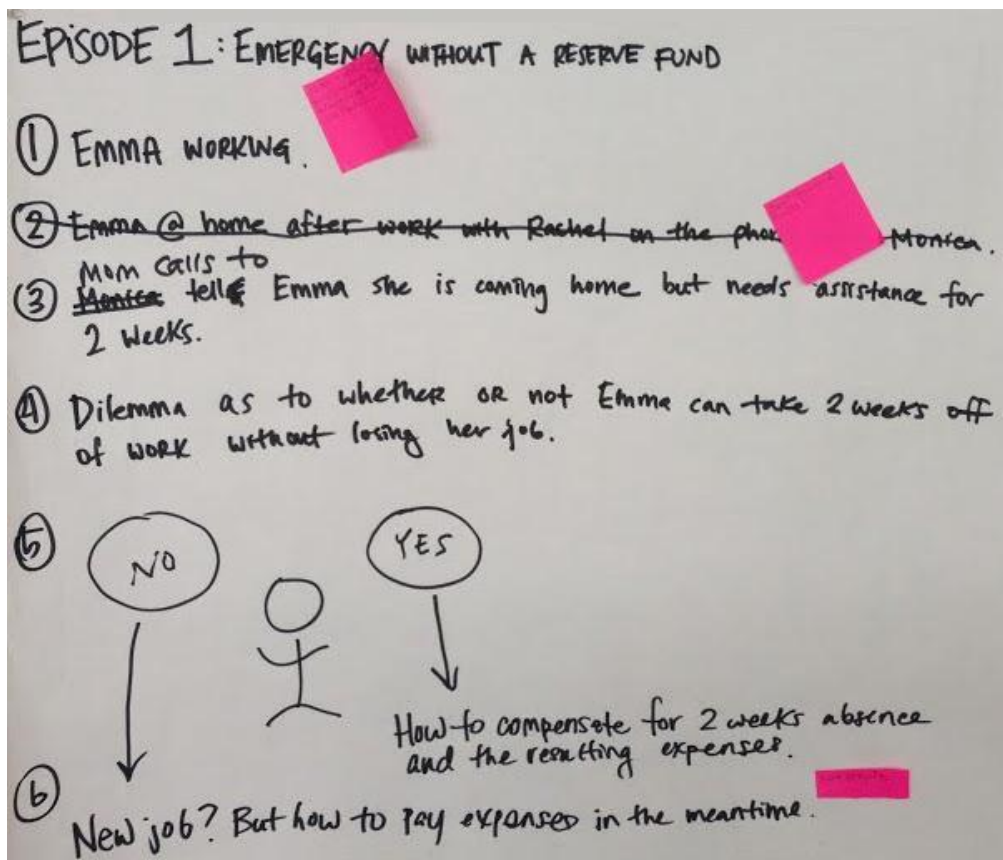 EPISODE 1: EMERGENCY WITHOUT A RESERVE FUND
① EMMA WORKING.
② Emma @ home after work with Rachel on the phon Monica.
Mom calls to
③ Monica tells Emma she is coming home but needs assistance for
2 weeks.
④ Dilemma as to whether or not Emma can take 2 weeks off
of work without losing her job.
⑤ NO YES
How to compensate for 2 weeks absence
and the resulting expenses.
⑥ New job? But how to pay expenses in the meantime.